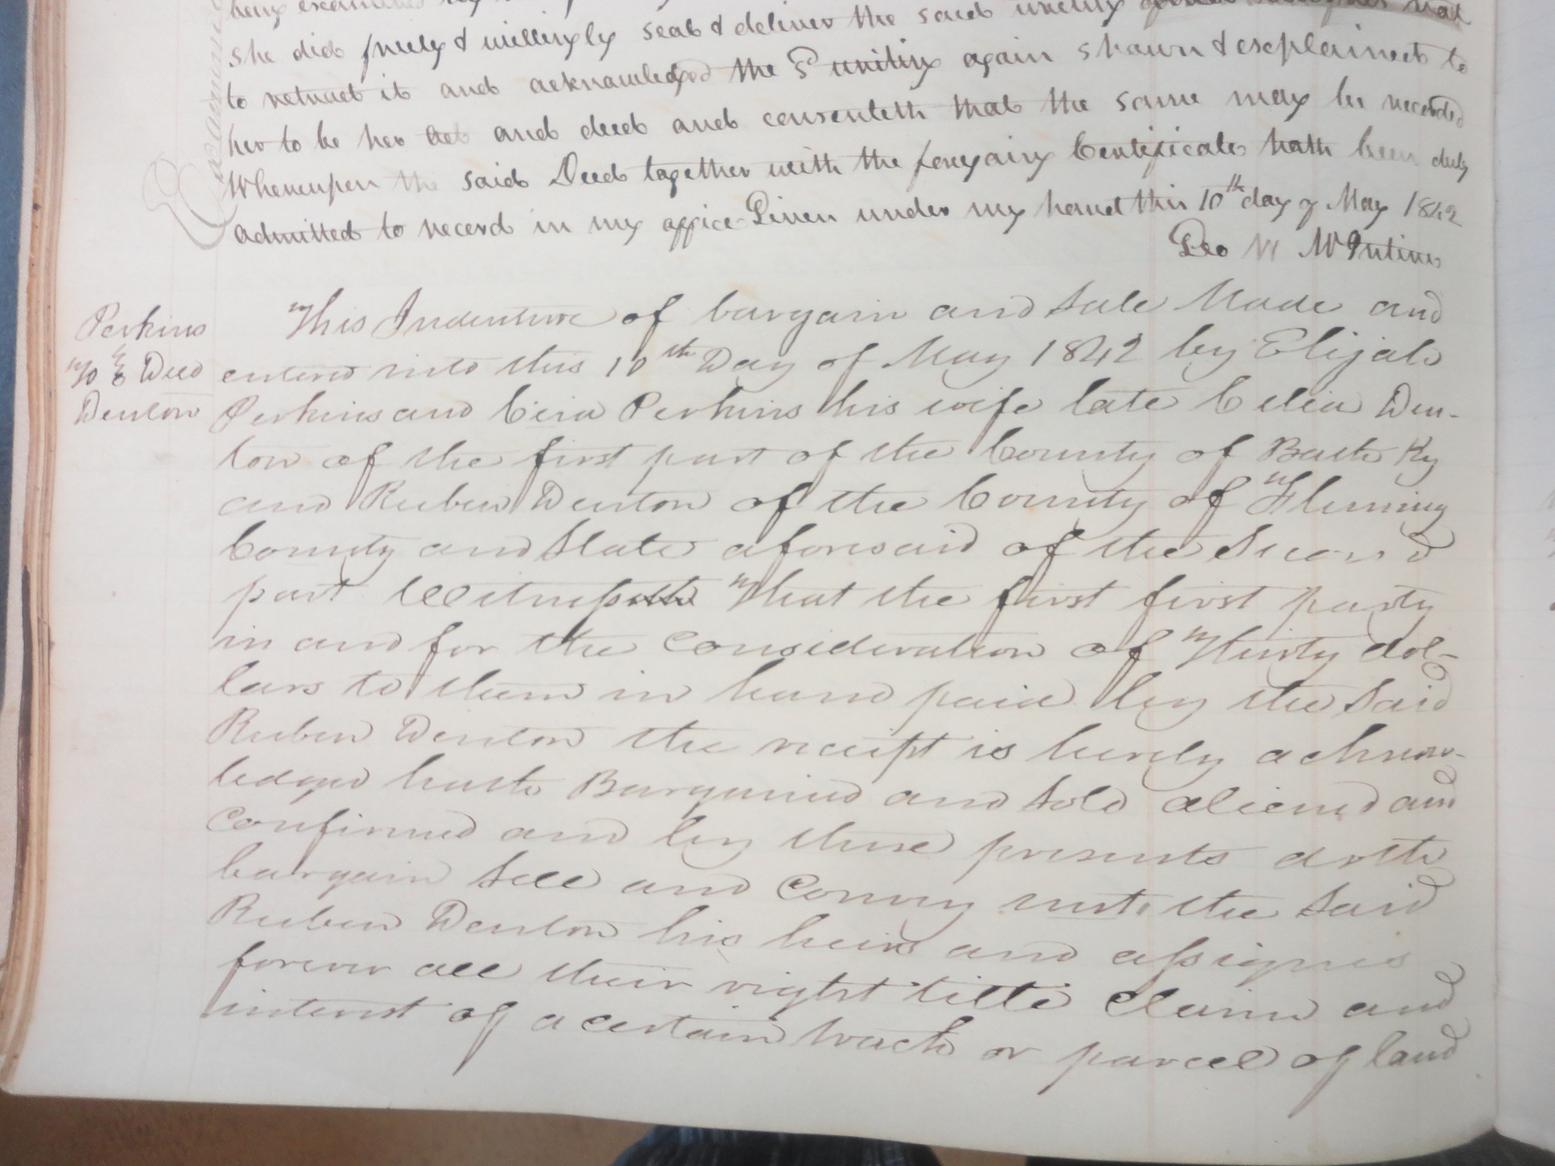 she did freely & willingly seal & deliver the said writing
to retract it and acknowledged the s writing again shown & explained to
her to be her act and deed and consenteth that the same may be recorded
Whereupon the said Deed together with the foregoing Certificate hath been duly
admitted to record in my office Given under my hand this 10th day of May 1842
Geo W McIntire
Examined
Perkins
To } Deed
Denton
This Indenture of bargain and Sale Made and
entered into this 10th Day of May 1842 by Elijah
Perkins and Cecia Perkins his wife late Celia Den-
ton of the first part of the County of Bath Ky
and Reuben Denton of the County of Fleming
County and State aforesaid of the Second
part Witnesseth That the first first party
in and for the consideration of Thirty dol-
lars to them in hand paid by the Said
Reuben Denton the receipt is hereby acknow-
ledged hath Bargained and Sold aliened and
Confirmed and by these presents doth
bargain Sell and Convey unto the Said
Reuben Denton his heirs and assignes
forever all their right title Claim and
interest of a certain track or parcel of land